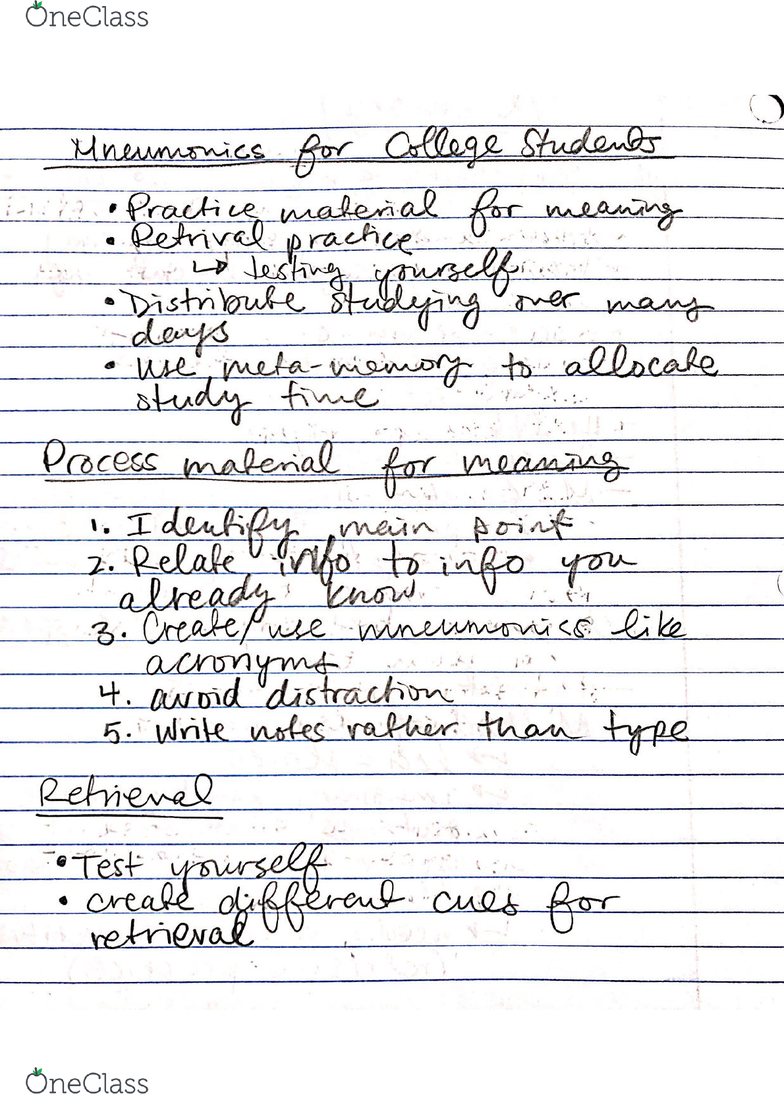 OneClass
Mneumonics for College Students
• Practice material for meaning
• Retrival practice
↳ testing yourself
• Distribute studying over many
days
• use meta-memory to allocate
study time
Process material for meaning
1. Identify main point
2. Relate info to info you
already know
3. Create/use mneumonics like
acronyms
4. avoid distraction
5. Write notes rather than type
Retrieval
• Test yourself
• create different cues for
retrieval
OneClass